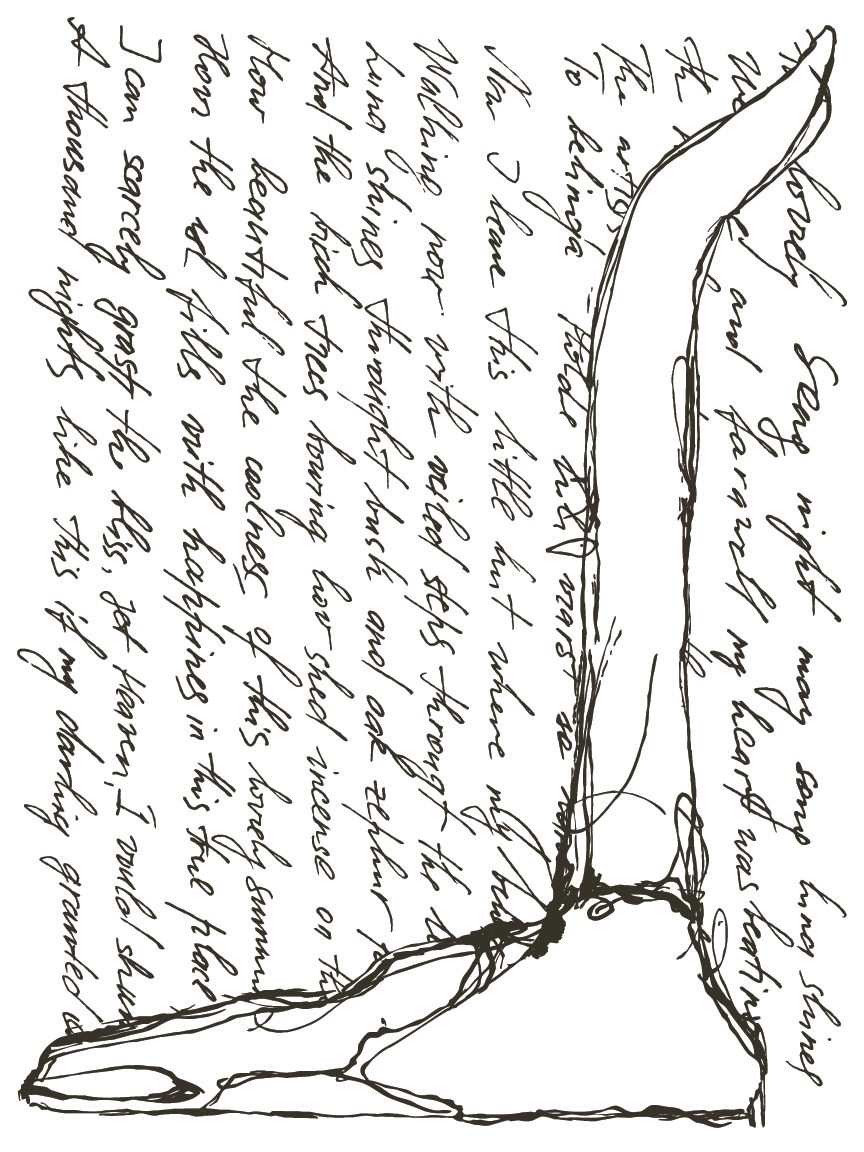 lovely Song night may song luna shines
and farwell my heart was beating
The
The artis
To
Now I leave this little hut where my
Walking now with veiled steps throught the
Luna shines throught bush and oak zephur
And the birch trees bowing low shed incense on
How beautiful the coolness of this lovely
How the sol fills with happines in this true place
I can scarcely grast the bliss, yet Heaven, I would
A thousand nights like this if my darling granted